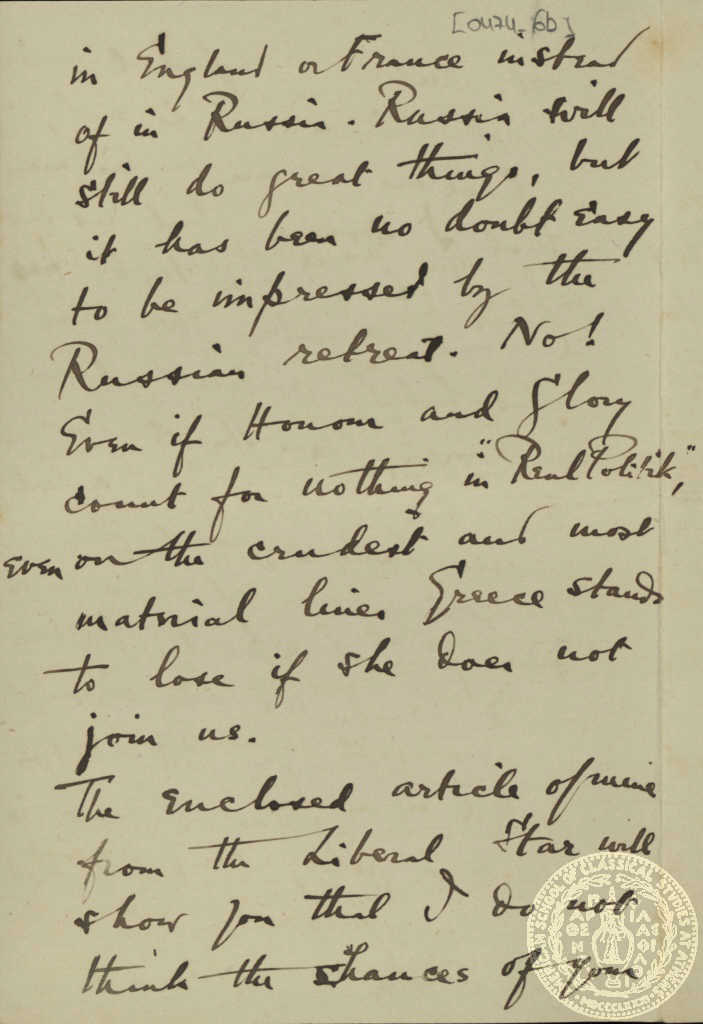 [0474-6b]
in England or France instead
of in Russia. Russia will
still do great things, but
it has been no doubt easy
to be impressed by the
Russian retreat. No!
Even if Honour and Glory
count for nothing in "Real Politik",
even on the crudest and most
material lines Greece stands
to lose if she does not
join us.
The enclosed article of mine
from the Liberal Star will
show you that I do not
think the chances of your
AMERICAN SCHOOL OF CLASSICAL STUDIES AT ATHENS
MDCCCLXXXI